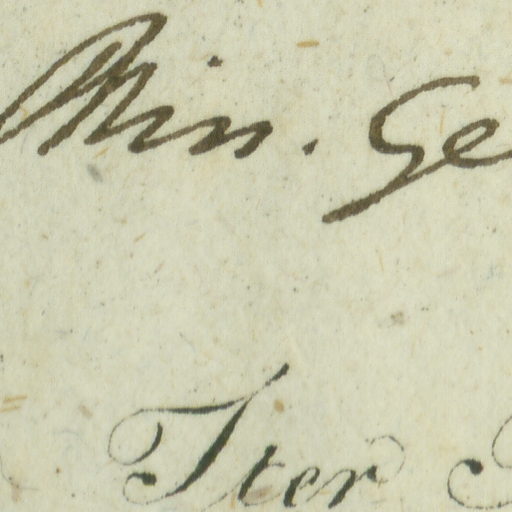 Min. Ge
Iter